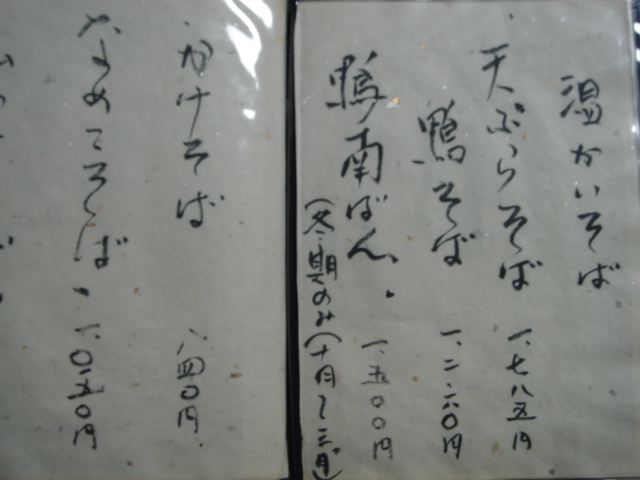 温かいそば
天ぷらそば 一、七八五円
鴨そば 一、二六〇円
鴨南ばん 一、五〇〇円
(冬期のみ(十月〜三月)
かけそば 八四〇円
なめこそば 一、〇五〇円